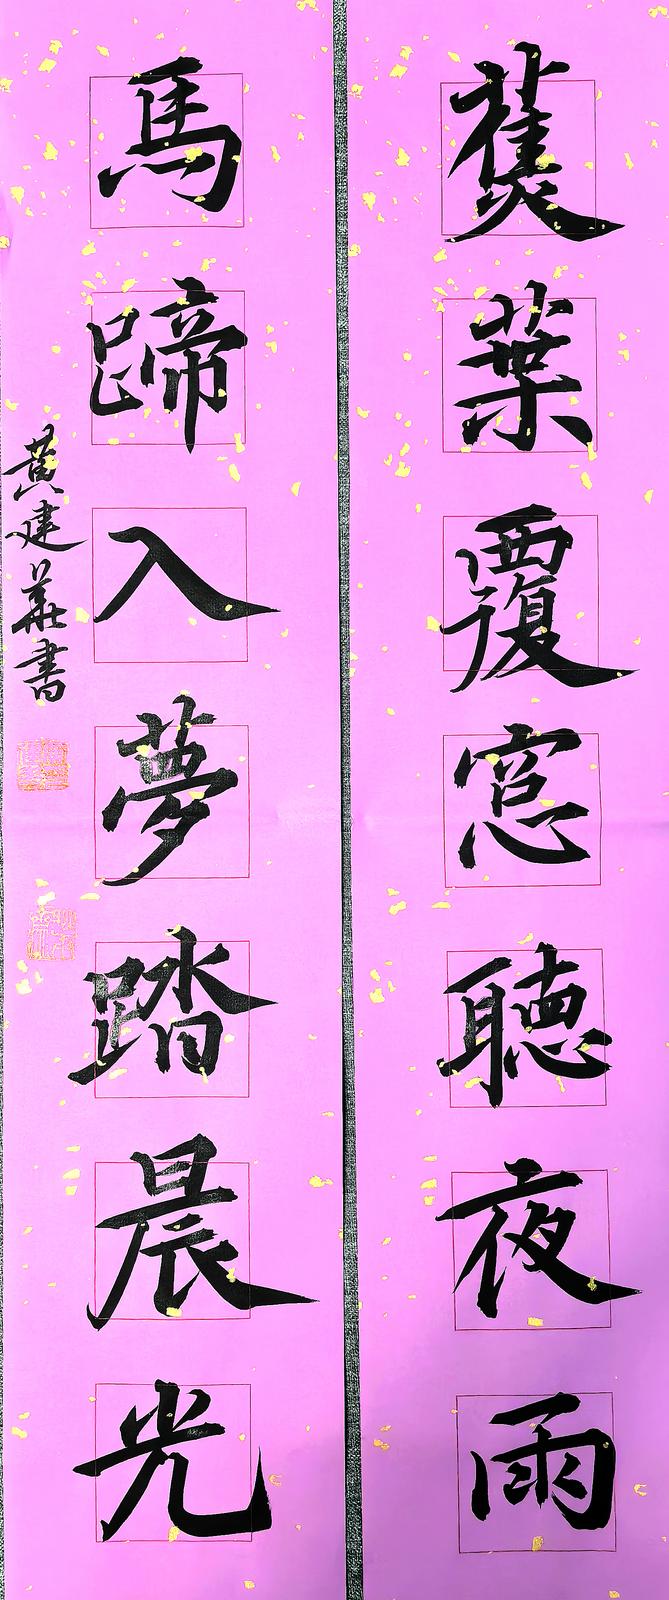 蕉葉覆窓聽夜雨
馬蹄入夢踏晨光
黄建華書